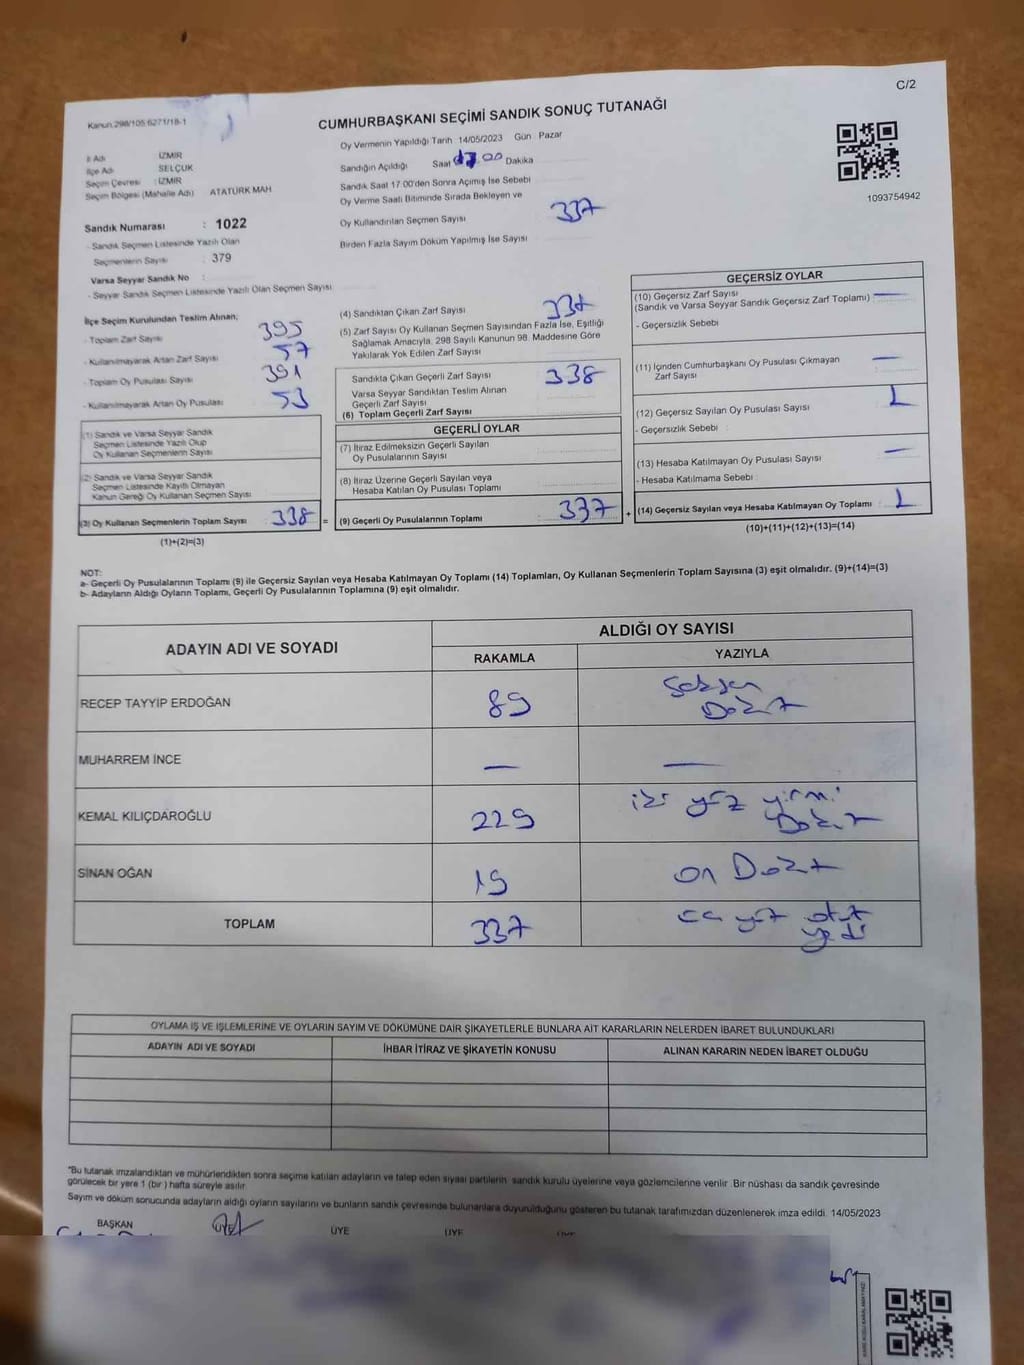 C/2
Kanun:298/105 6271/18-1
CUMHURBAŞKANI SEÇİMİ SANDIK SONUÇ TUTANAĞI
1093754942
İl Adı : İZMİR
İlçe Adı : SELÇUK
Seçim Çevresi : İZMİR
Seçim Bölgesi (Mahalle Adı) ATATÜRK MAH
Sandık Numarası : 1022
- Sandık Seçmen Listesinde Yazılı Olan
Seçmenlerin Sayısı : 379
Varsa Seyyar Sandık No :
- Seyyar Sandık Seçmen Listesinde Yazılı Olan Seçmen Sayısı :
Oy Vermenin Yapıldığı Tarih 14/05/2023 Gün Pazar
Sandığın Açıldığı Saat 17 00 Dakika
Sandık Saat 17:00'den Sonra Açımış İse Sebebi
Oy Verme Saati Bitiminde Sırada Bekleyen ve
Oy Kullandırılan Seçmen Sayısı 337
Birden Fazla Sayım Döküm Yapılmış İse Sayısı
İlçe Seçim Kurulundan Teslim Alınan;
- Toplam Zarf Sayısı 395
- Kullanılmayarak Artan Zarf Sayısı 57
- Toplam Oy Pusulası Sayısı 391
- Kullanılmayarak Artan Oy Pusulası 53
(1) Sandık ve Varsa Seyyar Sandık
Seçmen Listesinde Yazılı Olup
Oy Kullanan Seçmenlerin Sayısı
(2) Sandık ve Varsa Seyyar Sandık
Seçmen Listesinde Kayıtlı Olmayan
Kanun Gereği Oy Kullanan Seçmen Sayısı
(3) Oy Kullanan Seçmenlerin Toplam Sayısı : 338 =
(1)+(2)=(3)
(4) Sandıktan Çıkan Zarf Sayısı
(5) Zarf Sayısı Oy Kullanan Seçmen Sayısından Fazla İse, Eşitliği
Sağlamak Amacıyla, 298 Sayılı Kanunun 98. Maddesine Göre
Yakılarak Yok Edilen Zarf Sayısı
Sandıkta Çıkan Geçerli Zarf Sayısı 338
Varsa Seyyar Sandıktan Teslim Alınan
Geçerli Zarf Sayısı
(6) Toplam Geçerli Zarf Sayısı
GEÇERLİ OYLAR
(7) İtiraz Edilmeksizin Geçerli Sayılan
Oy Pusulalarının Sayısı
(8) İtiraz Üzerine Geçerli Sayılan veya
Hesaba Katılan Oy Pusulası Toplamı
(9) Geçerli Oy Pusulalarının Toplamı : 337 +
GEÇERSİZ OYLAR
(10) Geçersiz Zarf Sayısı
(Sandık ve Varsa Seyyar Sandık Geçersiz Zarf Toplamı) —
- Geçersizlik Sebebi
(11) İçinden Cumhurbaşkanı Oy Pusulası Çıkmayan
Zarf Sayısı —
(12) Geçersiz Sayılan Oy Pusulası Sayısı 1
- Geçersizlik Sebebi :
(13) Hesaba Katılmayan Oy Pusulası Sayısı —
- Hesaba Katılmama Sebebi
(14) Geçersiz Sayılan veya Hesaba Katılmayan Oy Toplamı : 1
(10)+(11)+(12)+(13)=(14)
NOT:
a- Geçerli Oy Pusulalarının Toplamı (9) ile Geçersiz Sayılan veya Hesaba Katılmayan Oy Toplamı (14) Toplamları, Oy Kullanan Seçmenlerin Toplam Sayısına (3) eşit olmalıdır. (9)+(14)=(3)
b- Adayların Aldığı Oyların Toplamı, Geçerli Oy Pusulalarının Toplamına (9) eşit olmalıdır.
ADAYIN ADI VE SOYADI
ALDIĞI OY SAYISI
RAKAMLA YAZIYLA
RECEP TAYYİP ERDOĞAN 89 Seksen Dokuz
MUHARREM İNCE — —
KEMAL KILIÇDAROĞLU 229 iki yüz yirmi Dokuz
SİNAN OĞAN 19 on Dokuz
TOPLAM 337 üç yüz otuz yedi
OYLAMA İŞ VE İŞLEMLERİNE VE OYLARIN SAYIM VE DÖKÜMÜNE DAİR ŞİKAYETLERLE BUNLARA AİT KARARLARIN NELERDEN İBARET BULUNDUKLARI
ADAYIN ADI VE SOYADI İHBAR İTİRAZ VE ŞİKAYETİN KONUSU ALINAN KARARIN NEDEN İBARET OLDUĞU
*Bu tutanak imzalandıktan ve mühürlendikten sonra seçime katılan adayların ve talep eden siyasi partilerin sandık kurulu üyelerine veya gözlemcilerine verilir. Bir nüshası da sandık çevresinde
görülecek bir yere 1 (bir) hafta süreyle asılır.
Sayım ve döküm sonucunda adayların aldığı oyların sayılarını ve bunların sandık çevresinde bulunanlara duyurulduğunu gösteren bu tutanak tarafımızdan düzenlenerek imza edildi. 14/05/2023
BAŞKAN ÜYE ÜYE ÜYE